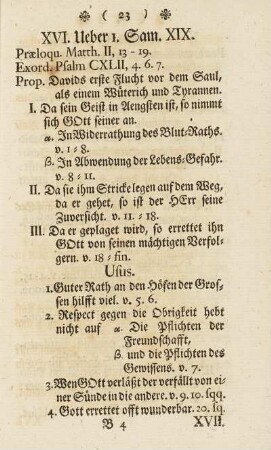 ( 23 )
XVI. Ueber 1. Sam. XIX.
Præloqu. Matth. II, 13 - 19.
Exord. Psalm CXLII, 4. 6. 7.
Prop. Davids erste Flucht vor dem Saul,
als einem Wüterich und Tyrannen.
I. Da sein Geist in Aengsten ist, so nimmt
sich GOtt seiner an.
α. In Widerrathung des Blut-Raths.
v. 1 - 8.
β. In Abwendung der Lebens-Gefahr.
v. 8 - 11.
II. Da sie ihm Stricke legen auf dem Weg,
da er gehet, so ist der HErr seine
Zuversicht. v. 11. - 18.
III. Da er geplaget wird, so errettet ihn
GOtt von seinen mächtigen Verfol-
gern. v. 18 - fin.
Usus.
1. Guter Rath an den Höfen der Gros-
sen hilfft viel. v. 5. 6.
2. Respect gegen die Obrigkeit hebt
nicht auf α. Die Pflichten der
Freundschafft,
β. und die Pflichten des
Gewissens. v. 7.
3. Wen GOtt verläßt der verfällt von ei-
ner Sünde in die andere. v. 9. 10. sqq.
4. Gott errettet offt wunderbar. 20. sq.
B 4 XVII.